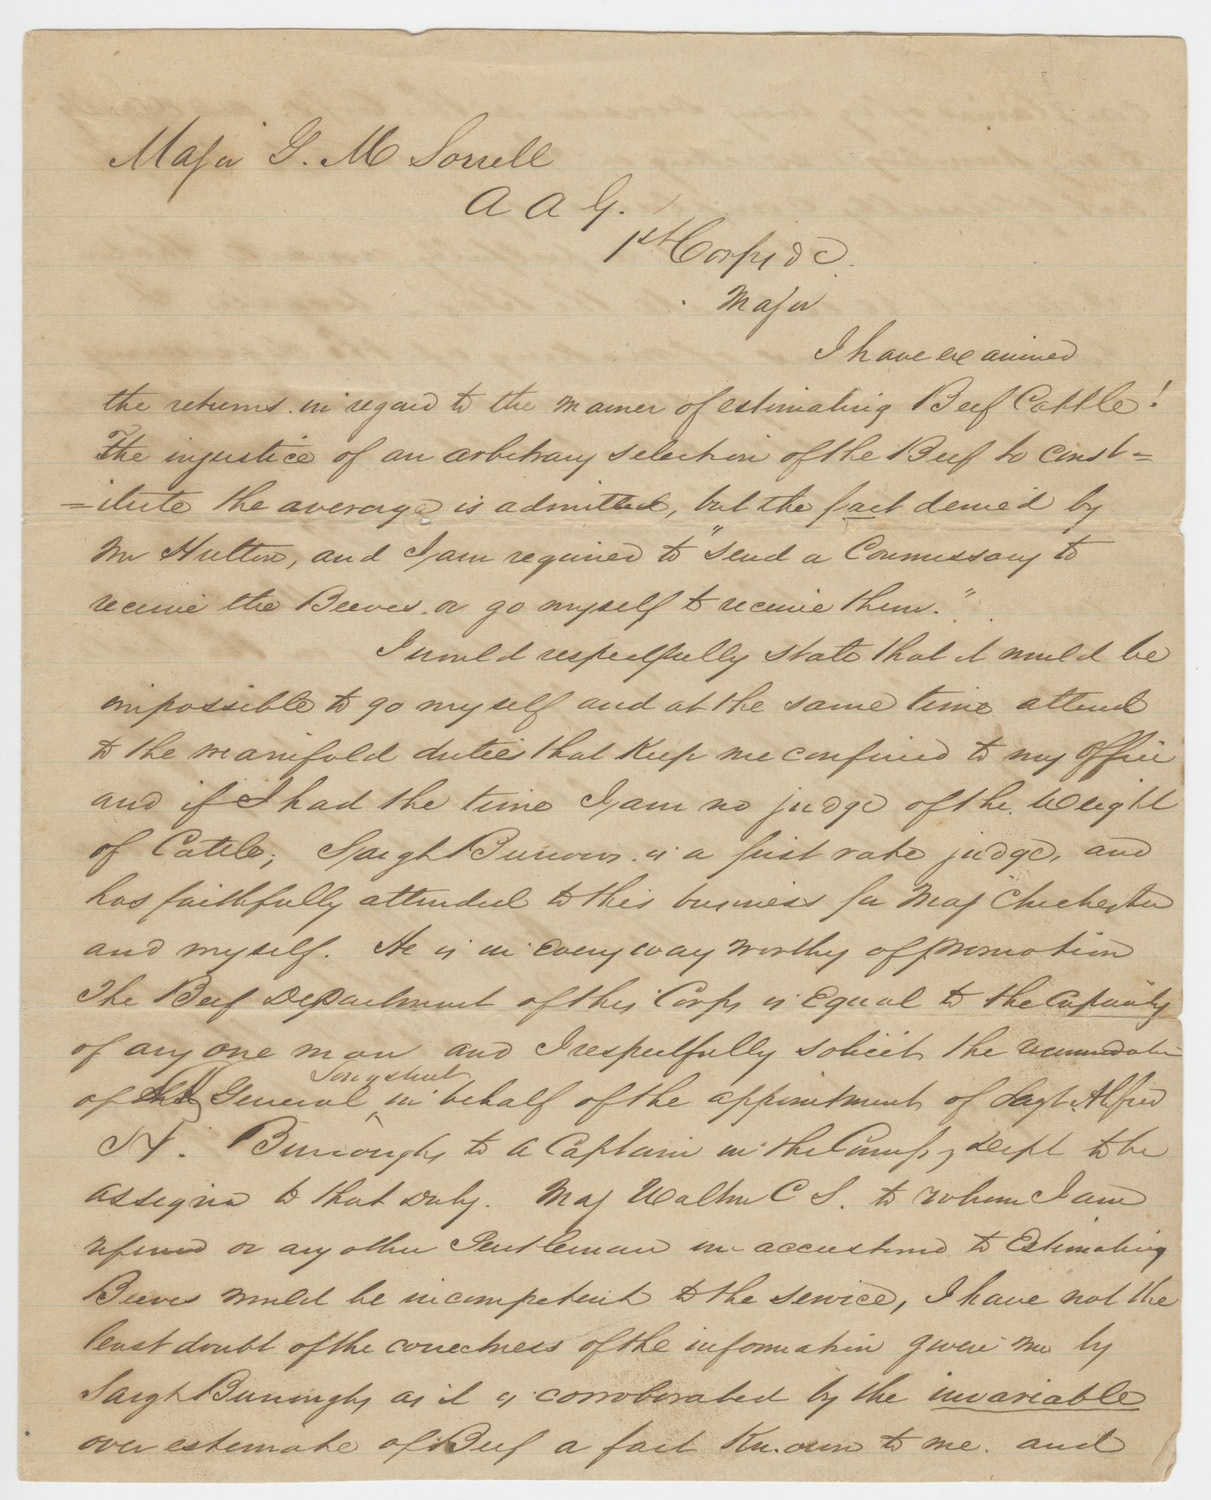 Major G. M Sorrell
A A G.
1st Corps &c.
Major
I have examined
the returns in regard to the manner of estimating Beef Cattle!
The injustice of an arbitrary selection of the Beef to const=
=itute the average is admitted, but the fact denied by
Mr Hutton, and I am required to "send a Commissary to
receive the Beeves or go myself to receive them."
I would respectfully state that it would be
impossible to go myself and at the same time attend
to the manifold duties that keep me confined to my office
and if I had the time I am no judge of the weight
of Cattle; Sargt Burrows is a first rate judge, and
has faithfully attended to this business for Maj Chichester
and myself. He is in every way worthy of promotion
The Beef Department of this Corps is Equal to the capacity
of any one man and I respectfully solicit the recommendation
of General Longstreet in behalf of the appointment of Sargt Alfred
H. Burroughs to a Captain in the Comsy Dept to be
assigned to that duty. Maj Walton C S. to whom I am
refered or any other Gentleman un accustomed to Estimating
Beeves would be incompetent to the service, I have not the
least doubt of the correctness of the information given me by
Sargt Burroughs as it is corroborated by the invariable
over estimate of Beef a fact Known to me and